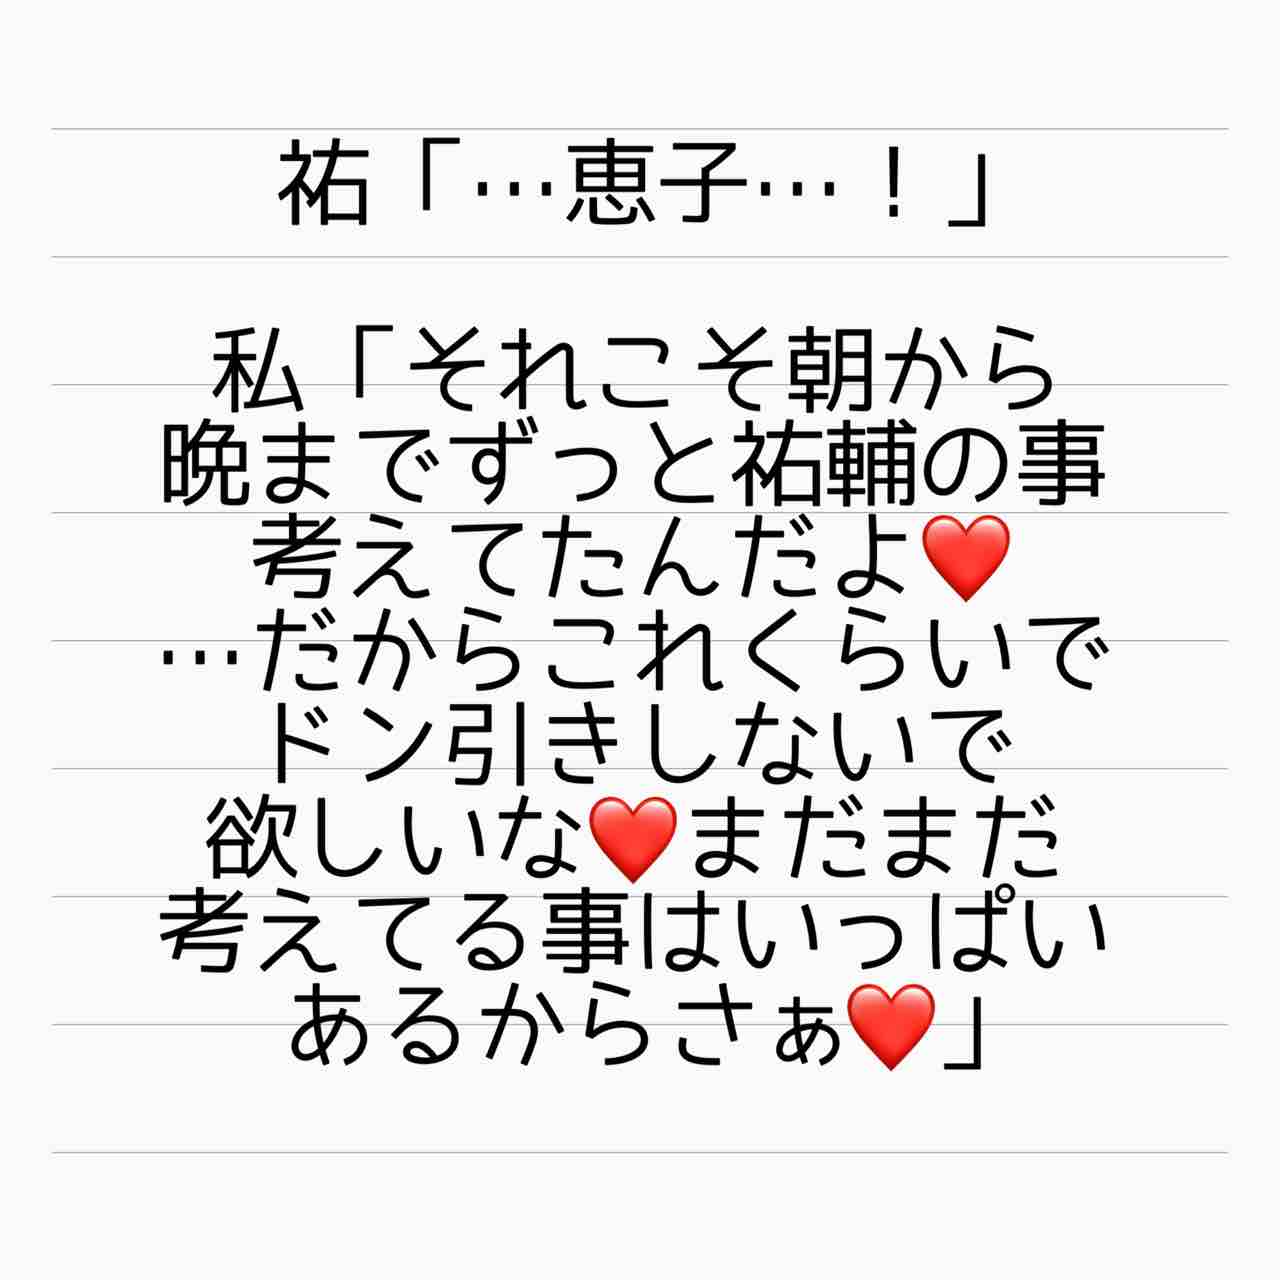 祐「…恵子…！」
私「それこそ朝から
晩までずっと祐輔の事
考えてたんだよ❤️
…だからこれくらいで
ドン引きしないで
欲しいな❤️まだまだ
考えてる事はいっぱい
あるからさぁ❤️」